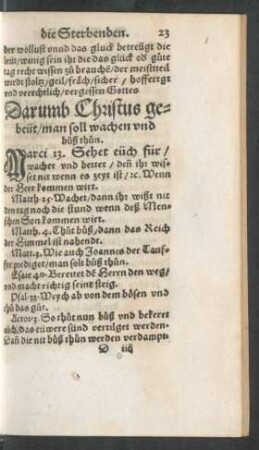 die Sterbenden. 23
der wolluſt vnnd das gluck betreügt die
leüt/wenig ſein ihr die das glück od̕ gůte
tag recht wiſſen zů brauchẽ/der meiſtteil
wirdt ſtoltz/geil/fräch/ſicher / hoffertig
vnd verechtlich/vergeſſen Gottes
Darumb Chriſtus ge-
beüt/man ſoll wachen vnd
bůß thůn.
Marci 13. Sehet eüch für/
wachet vnd bettet / deñ ihr wiſ-
ſet nit wenn es zeyt iſt/ꝛc. Wenn
der Herr kommen wirt.
Matth. 25. Wachet/dann ihr wißt nit
den tag noch die ſtund wenn deß Men-
ſchen Son kommen wirt.
Matth. 4. Thůt bůß/dann das Reich
der Himmel iſt nahendt.
Matt. 3. Wie auch Joannes der Tauf-
fer prediget/man ſolt bůß thůn.
Eſaie 40. Bereitet dẽ Herrn den weg/
vnd macht richtig ſeine ſteig.
Pſal. 33. Weych ab von dem böſen vnd
thů das gůt.
Actor. 3. So thůt nun bůß vnd bekeret
eüch/das eüwere ſünd vertilget werden.
Dañ die nit bůß thůn werden verdampt.
D iiij